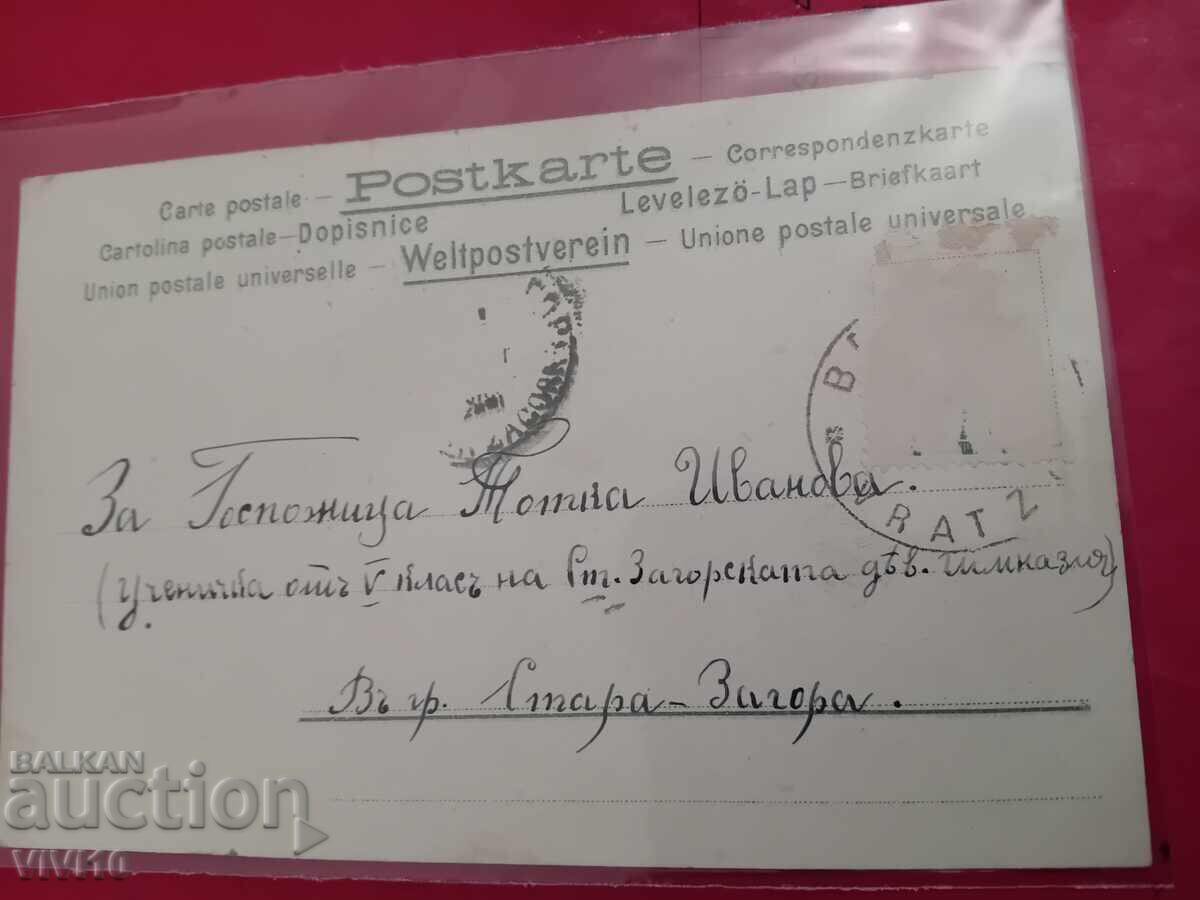 Carte postale. — Postkarte — Correspondenzkarte
Cartolina postale — Dopisnice Levelezö-Lap — Briefkaart
Union postale universelle — Weltpostverein — Unione postale universale
ZAGORA
B
RATZ
За Госпожица Тотка Иванова.
(ученичка отъ V класъ на Ст. Загорската дѣв. гимназия)
Въ гр. Стара-Загора.
BALKAN
auction
VIVI10